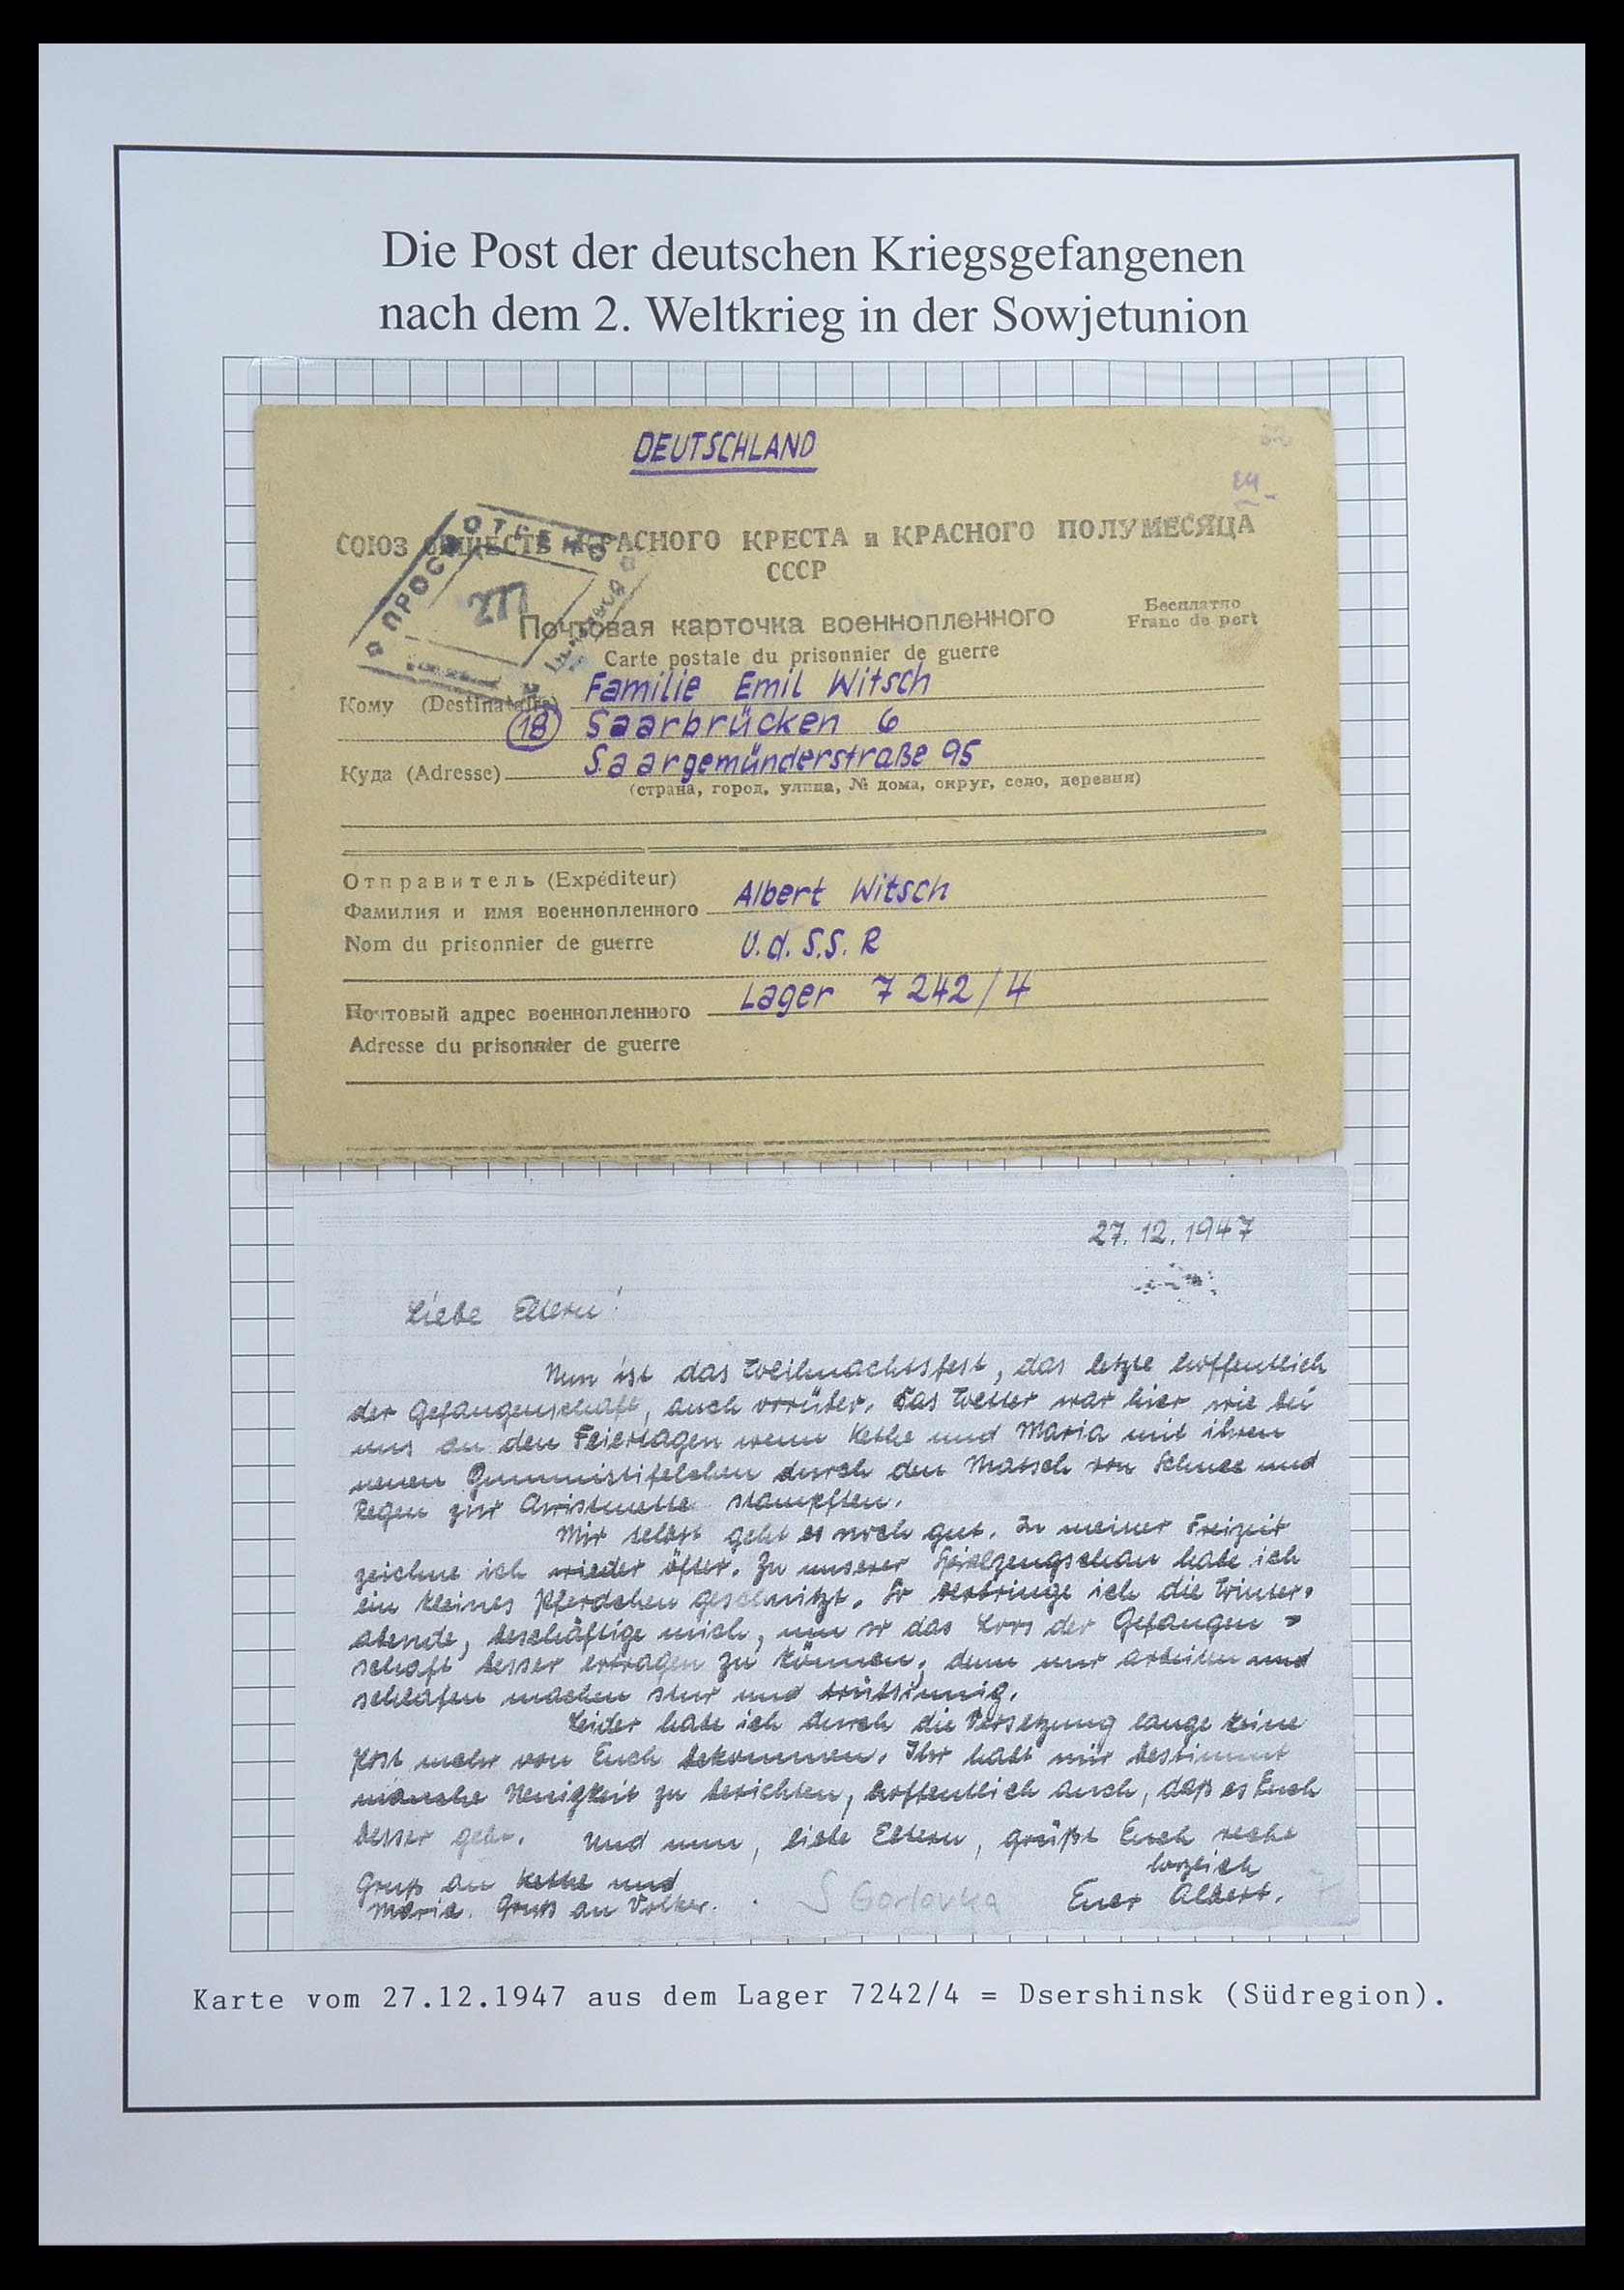 Die Post der deutschen Kriegsgefangenen
nach dem 2. Weltkrieg in der Sowjetunion
DEUTSCHLAND
СОЮЗ ОБЩЕСТВ КРАСНОГО КРЕСТА и КРАСНОГО ПОЛУМЕСЯЦА
СССР
ПРОСМОТРЕНО
277
Почтовая карточка военнопленного
Carte postale du prisonnier de guerre
Бесплатно
Franc de port
Кому (Destinataire) Familie Emil Witsch
18 Saarbrücken 6
Куда (Adresse) Saargemünderstraße 95
(страна, город, улица, № дома, округ, село, деревня)
Отправитель (Expéditeur)
Фамилия и имя военнопленного Albert Witsch
Nom du prisonnier de guerre U.d.S.S.R
Почтовый адрес военнопленного Lager 7242/4
Adresse du prisonnier de guerre
27.12.1947
Liebe Eltern!
Nun ist das Weihnachtsfest, das letzte hoffentlich
der Gefangenschaft, auch vorüber. Das Wetter war hier wie bei
uns an den Feiertagen wenn Kethe und Maria mit ihren
neuen Gummistifelchen durch den Matsch von Schnee und
Regen zur Christmette stampften.
Mir selbst geht es noch gut. In meiner Freizeit
zeichne ich wieder öfter. Zu unserer Spielzeugschau habe ich
ein kleines Pferdchen geschnitzt. So verbringe ich die Winter-
abende, beschäftige mich, um so das Loos der Gefangen=
schaft besser ertragen zu können, denn nur arbeiten und
schlafen machen stur und trübsinnig.
Leider habe ich durch die Versetzung lange keine
Post mehr von Euch bekommen. Ihr habt mir bestimmt
manche Neuigkeit zu berichten, hoffentlich auch, daß es Euch
besser geht. Und nun, liebe Eltern, grüßt Euch recht
herzlich
Gruß an Kethe und
Maria. Gruß an Volker.
S Gorlovka
Euer Albert.
7
Karte vom 27.12.1947 aus dem Lager 7242/4 = Dsershinsk (Südregion).